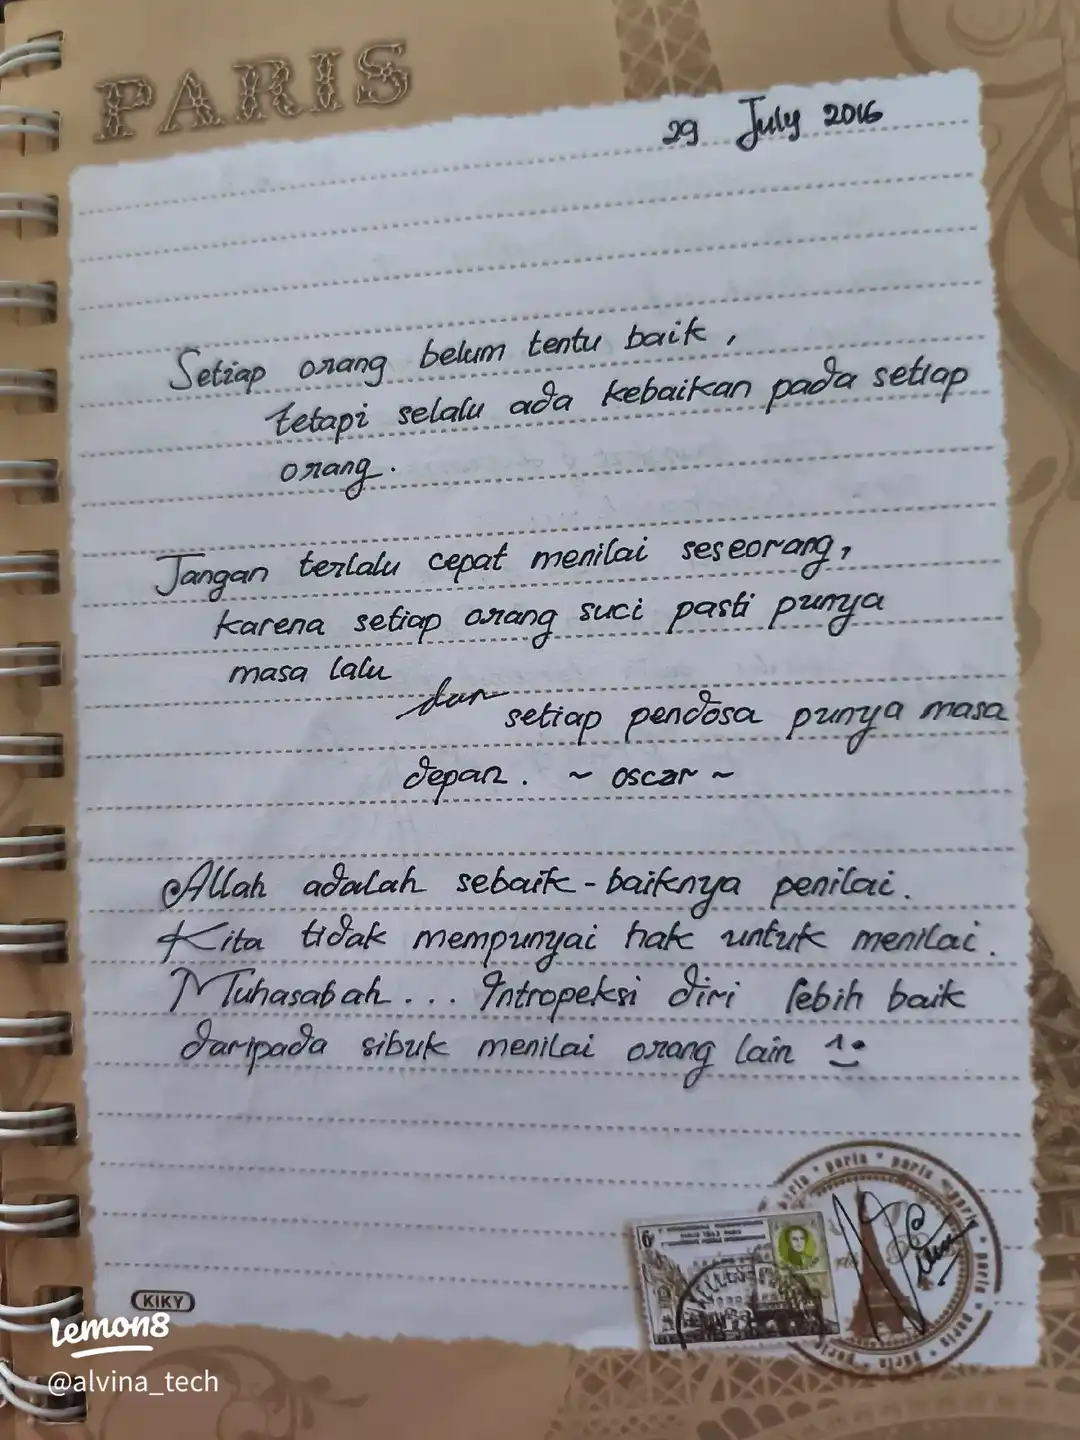 PARIS
29 July 2016
Setiap orang belum tentu baik,
tetapi selalu ada kebaikan pada setiap
orang.
Jangan terlalu cepat menilai seseorang,
karena setiap orang suci pasti punya
masa lalu
dan
setiap pendosa punya masa
depan. ~ oscar ~
Allah adalah sebaik-baiknya penilai.
Kita tidak mempunyai hak untuk menilai.
Muhasabah... Intropeksi diri lebih baik
daripada sibuk menilai orang lain
paris • paris
6
KIKY
Lemon8
@alvina_tech